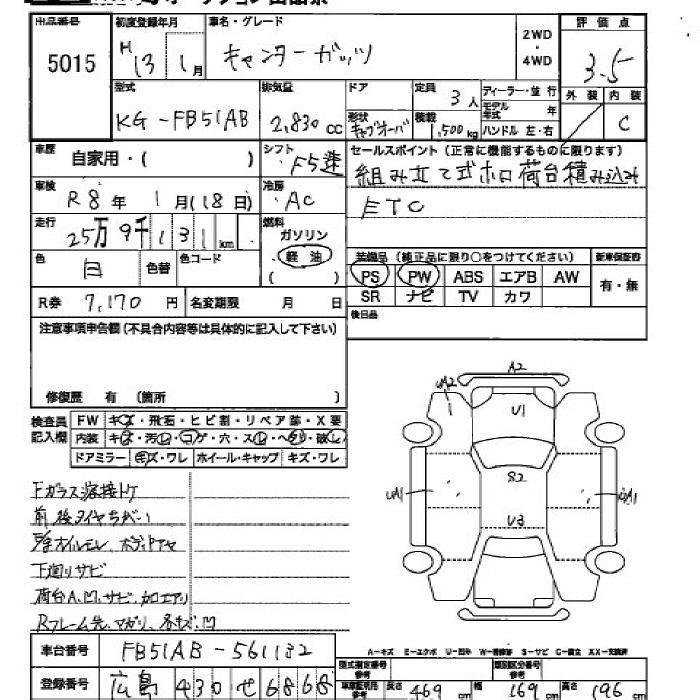 出品番号 初度登録年月 車名・グレード 2WD・4WD 評価点
5015 H13年1月 キャンターガッツ 3.5
外装 内装
C
型式 排気量 ドア 定員 ディーラー・並行
KG-FB51AB 2,830cc 3人 モデル年式 年
形状 積載 ハンドル 左・右
キャブオーバ 1,500kg
車歴 自家用・( ) シフト F5速 セールスポイント(正常に機能するものに限ります)
組み立て式ホロ荷台積み込み
車検 R8年1月(18日) 冷房 AC ETC
走行 25万9千131km 燃料 ガソリン
軽油
( )
装備品(純正品に限り○をつけてください) 新車保証書
色 白 色替 色コード PS PW ABS エアB AW 有・無
R券 7,170円 名変期限 月 日 SR ナビ TV カワ
後日品
注意事項申告欄(不具合内容等は具体的に記入して下さい)
修復歴 有 (箇所 )
検査員記入欄 FW キズ・飛石・ヒビ割・リペア跡・X要
内装 キズ・汚レ・コゲ・穴・スレ・ヘタリ・破レ
ドアミラー キズ・ワレ ホイール・キャップ キズ・ワレ
A2
UA2
U1
S2
UA1
U3
Fガラス溶接トケ
前後タイヤちがい
下廻りサビ
荷台A、凹、サビ、加工アリ
Rフレーム先、マガリ、各キズ、凹
A-キズ E-エクボ U-凹み W-補修跡 S-サビ C-腐食 XX-交換済
車台番号 FB51AB-561132
型式指定番号 参考 類別区分番号 参考
登録番号 広島 430 せ 6868 車庫証明用 参考 長さ 469cm 幅 169cm 高さ 196cm